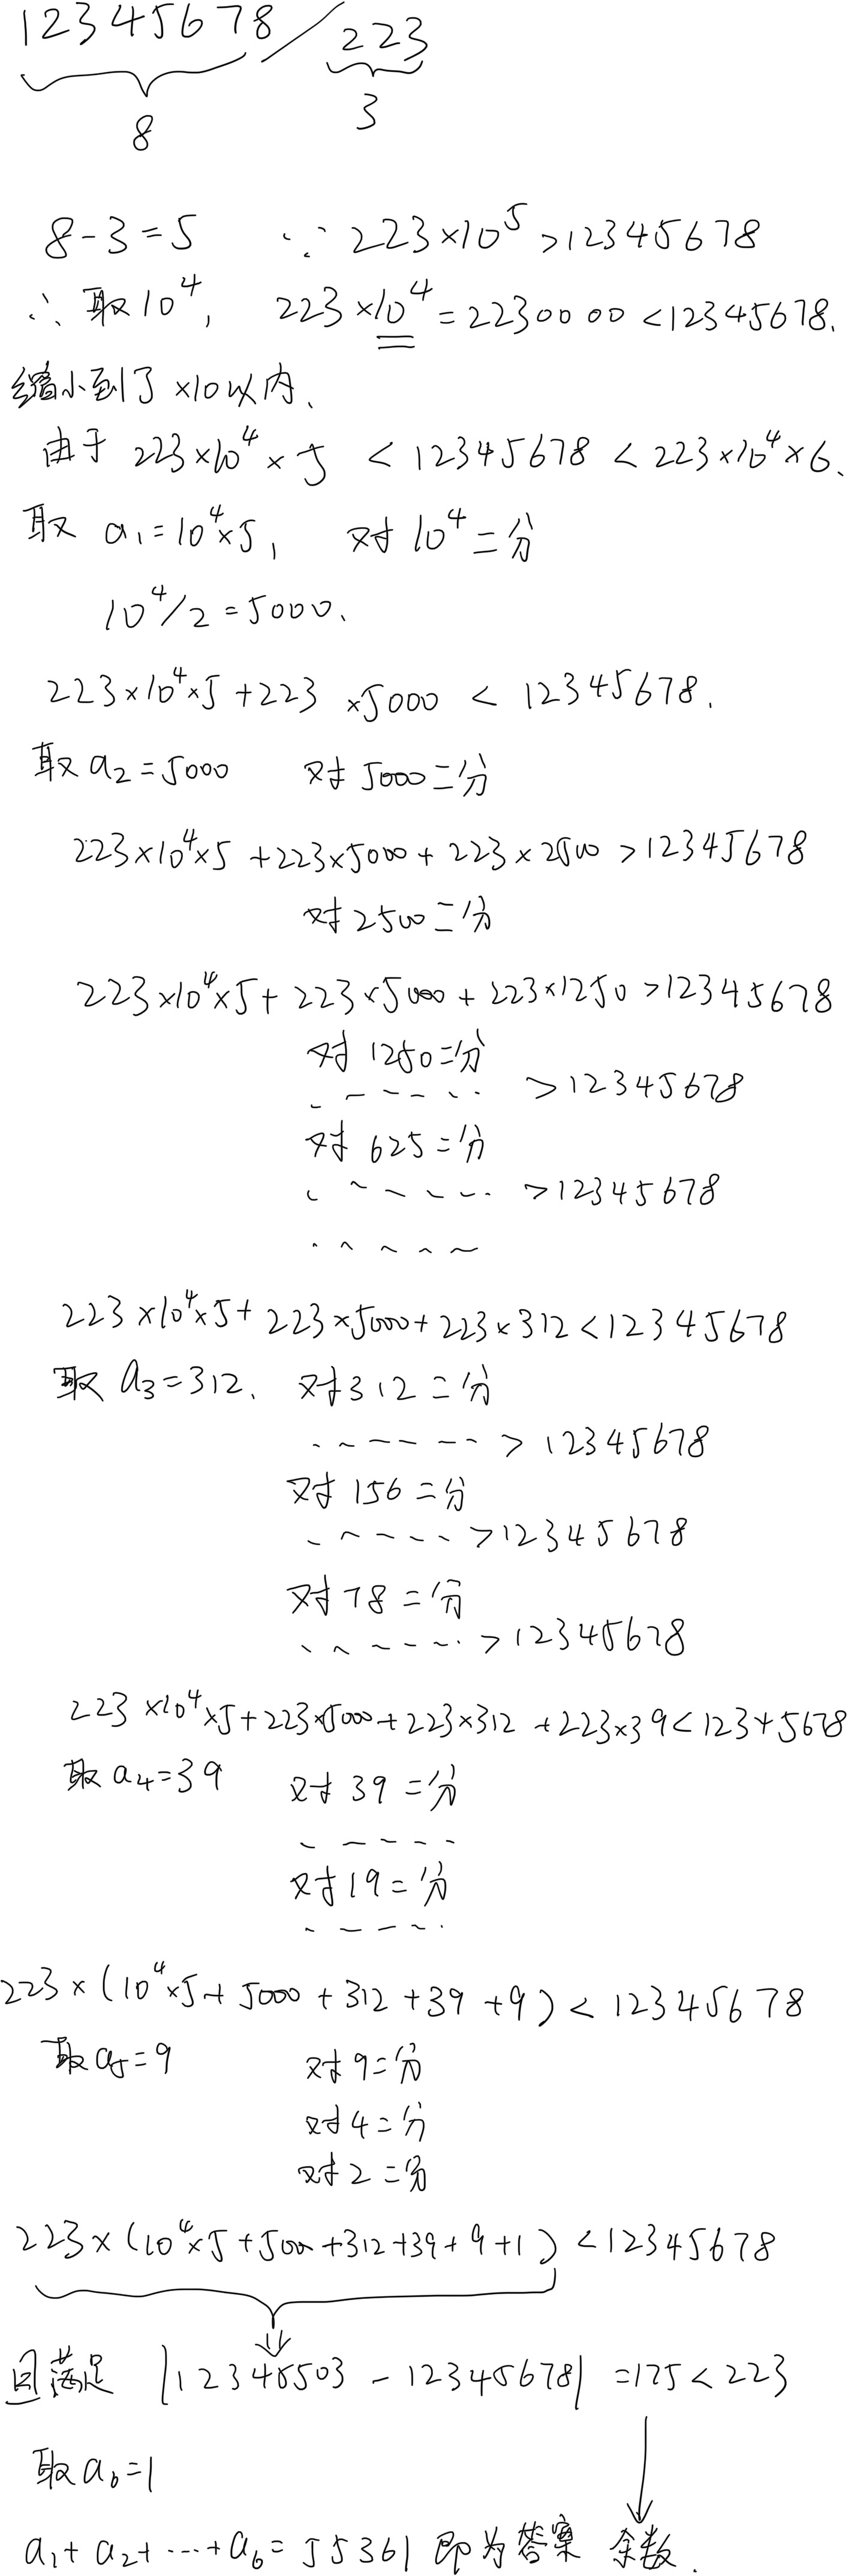 12345678 / 223
8 3
8-3=5 ∵ 223×10⁵ >12345678
∴ 取10⁴, 223×10⁴=2230000<12345678.
缩小到了×10以内、
由于 223×10⁴×5 < 12345678 < 223×10⁴×6、
取 a₁=10⁴×5, 对10⁴二分
10⁴/2=5000、
223×10⁴×5+223×5000 < 12345678.
取a₂=5000 对5000二分
223×10⁴×5+223×5000+223×2500>12345678
对2500二分
223×10⁴×5+223×5000+223×1250>12345678
对1250二分
------ >12345678
对625二分
------ >12345678
-----
223×10⁴×5+223×5000+223×312<12345678
取a₃=312、 对312二分
------ > 12345678
对156二分
----- >12345678
对78二分
------ >12345678
223×10⁴×5+223×5000+223×312+223×39<12345678
取a₄=39 对39二分
-----
对19二分
-----
223×(10⁴×5+5000+312+39+9)<12345678
取a₅=9 对9二分
对4二分
对2二分
223×(10⁴×5+5000+312+39+9+1)<12345678
且满足 |12345503-12345678|=175<223
取a₆=1
a₁+a₂+…+a₆=55361 即为答案 余数.